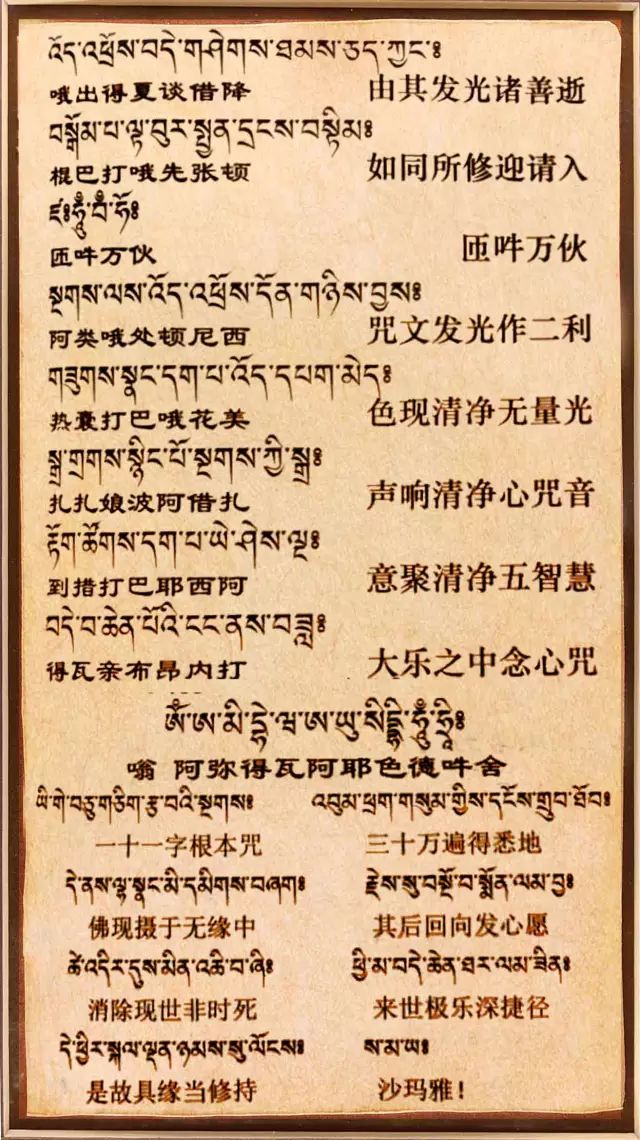 འོད་འཕྲོས་བདེ་གཤེགས་ཐམས་ཅད་ཀྱང་༔
哦出得夏谈借降 由其发光诸善逝
བསྒོམ་པ་ལྟ་བུར་སྤྱན་དྲངས་བསྟིམ༔
棍巴打哦先张顿 如同所修迎请入
ཛཿཧཱུྃ་བཾ་ཧོཿ
匝吽万伙 匝吽万伙
སྔགས་ལས་འོད་འཕྲོས་དོན་གཉིས་བྱས༔
阿类哦处顿尼西 咒文发光作二利
གཟུགས་སྣང་དག་པ་འོད་དཔག་མེད༔
热囊打巴哦花美 色现清净无量光
སྒྲ་གྲགས་སྙིང་པོ་སྔགས་ཀྱི་སྒྲ༔
扎扎娘波阿借扎 声响清净心咒音
རྟོག་ཚོགས་དག་པ་ཡེ་ཤེས་ལྔ༔
到措打巴耶西阿 意聚清净五智慧
བདེ་བ་ཆེན་པོའི་ངང་ནས་བཟླ༔
得瓦亲布昂内打 大乐之中念心咒
ཨོཾ་ཨ་མི་དྷེ་ཝ་ཨ་ཡུ་སིདྡྷི་ཧཱུྃ་ཧྲཱིཿ
嗡 阿弥得瓦阿耶色德吽舍
ཡི་གེ་བཅུ་གཅིག་རྩ་བའི་སྔགས༔ འབུམ་ཕྲག་གསུམ་གྱིས་དངོས་གྲུབ་ཐོབ༔
一十一字根本咒 三十万遍得悉地
དེ་ནས་ལྷ་སྣང་མི་དམིགས་བཞག༔ རྗེས་སུ་བསྔོ་བ་སྨོན་ལམ་བྱ༔
佛现摄于无缘中 其后回向发心愿
ཚེ་འདིར་དུས་མིན་འཆི་བ་ཞི༔ ཕྱི་མ་བདེ་ཆེན་ཐར་ལམ་ཟིན༔
消除现世非时死 来世极乐深捷径
དེ་ཕྱིར་སྐལ་ལྡན་ཉམས་སུ་ལོངས༔ ས་མ་ཡ༔
是故具缘当修持 沙玛雅！